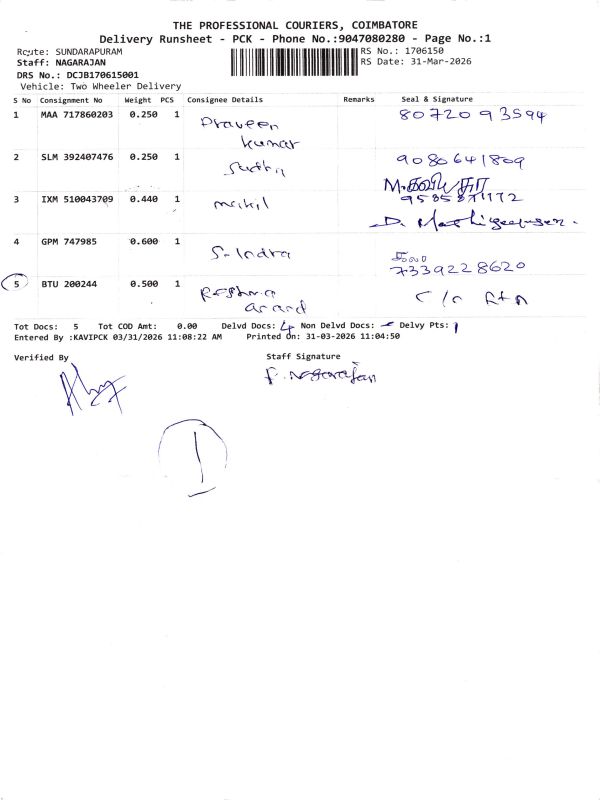 THE PROFESSIONAL COURIERS, COIMBATORE
Delivery Runsheet - PCK - Phone No.:9047080280 - Page No.:1
Route: SUNDARAPURAM
RS No.: 1706150
Staff: NAGARAJAN
RS Date: 31-Mar-2026
DRS No.: DCJB170615001
Vehicle: Two Wheeler Delivery
S No Consignment No Weight PCS Consignee Details Remarks Seal & Signature
1 MAA 717860203 0.250 1 Praveen kumar 80720 93594
2 SLM 392407476 0.250 1 9080641809
3 IXM 510043709 0.440 1
4 GPM 747985 0.600 1 S. Indra 7339228620
5 BTU 200244 0.500 1 Reshma anand
Tot Docs: 5 Tot COD Amt: 0.00 Delvd Docs: 4 Non Delvd Docs: Delvy Pts: 1
Entered By :KAVIPCK 03/31/2026 11:08:22 AM Printed On: 31-03-2026 11:04:50
Verified By Staff Signature
P. Nagarajan
1